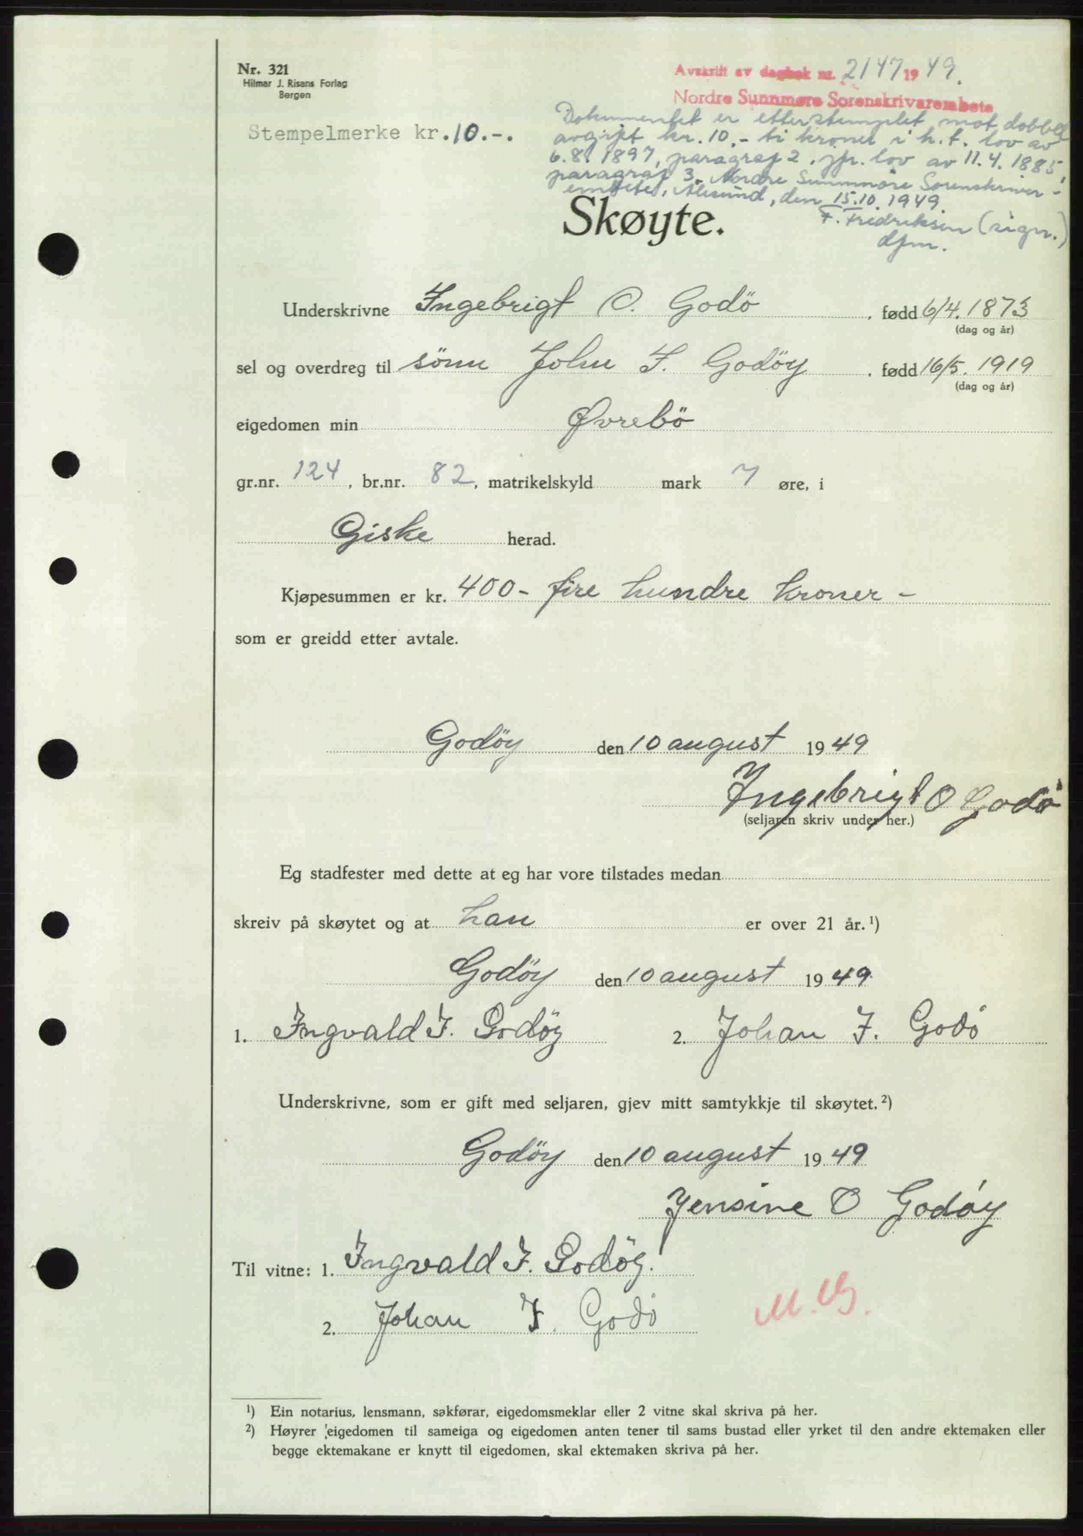 Nr. 321
Hilmar J. Risans Forlag
Bergen
Stempelmerke kr.10.-.
Avskrift av dagbok nr. 2147 1949.
Nordre Sunnmøre Sorenskrivarembete
Dokumentet er etterstemplet mot dobbel
avgift kr. 10,- ti kroner i h.t. lov av
6.8. 1897, paragraf 2, jfr. lov av 11.4. 1885,
paragraf 3. Nordre Sunnmøre Sorenskriver-
embete, Ålesund, den 15.10.1949
F. Fredriksen (sign.)
dfm.
Skøyte.
Underskrivne Ingebrigt O. Godö, fødd 6/4. 1873
(dag og år)
sel og overdreg til sönn John I. Godöy, fødd 16/5. 1919
(dag og år)
eigedomen min Øvrebö
gr.nr. 124, br.nr. 82, matrikelskyld mark 7 øre, i
Giske herad.
Kjøpesummen er kr. 400- fire hundre kroner -
som er greidd etter avtale.
Godöy den 10 august 1949
Ingebrigt O Godö
(seljaren skriv under her.)
Eg stadfester med dette at eg har vore tilstades medan
skreiv på skøytet og at han er over 21 år.¹)
Godöy den 10 august 1949
1. Ingvald I. Godöy 2. Johan I. Godö
Underskrivne, som er gift med seljaren, gjev mitt samtykkje til skøytet.²)
Godöy den 10 august 1949
Jensine O Godöy
Til vitne: 1. Ingvald I. Godöy.
2. Johan I. Godö
M.G.
¹) Ein notarius, lensmann, sakførar, eigedomsmeklar eller 2 vitne skal skriva på her.
²) Høyrer eigedomen til sameiga og eigedomen anten tener til sams bustad eller yrket til den andre ektemaken eller
begge ektemakane er knytt til eigedomen, skal ektemaken skriva på her.